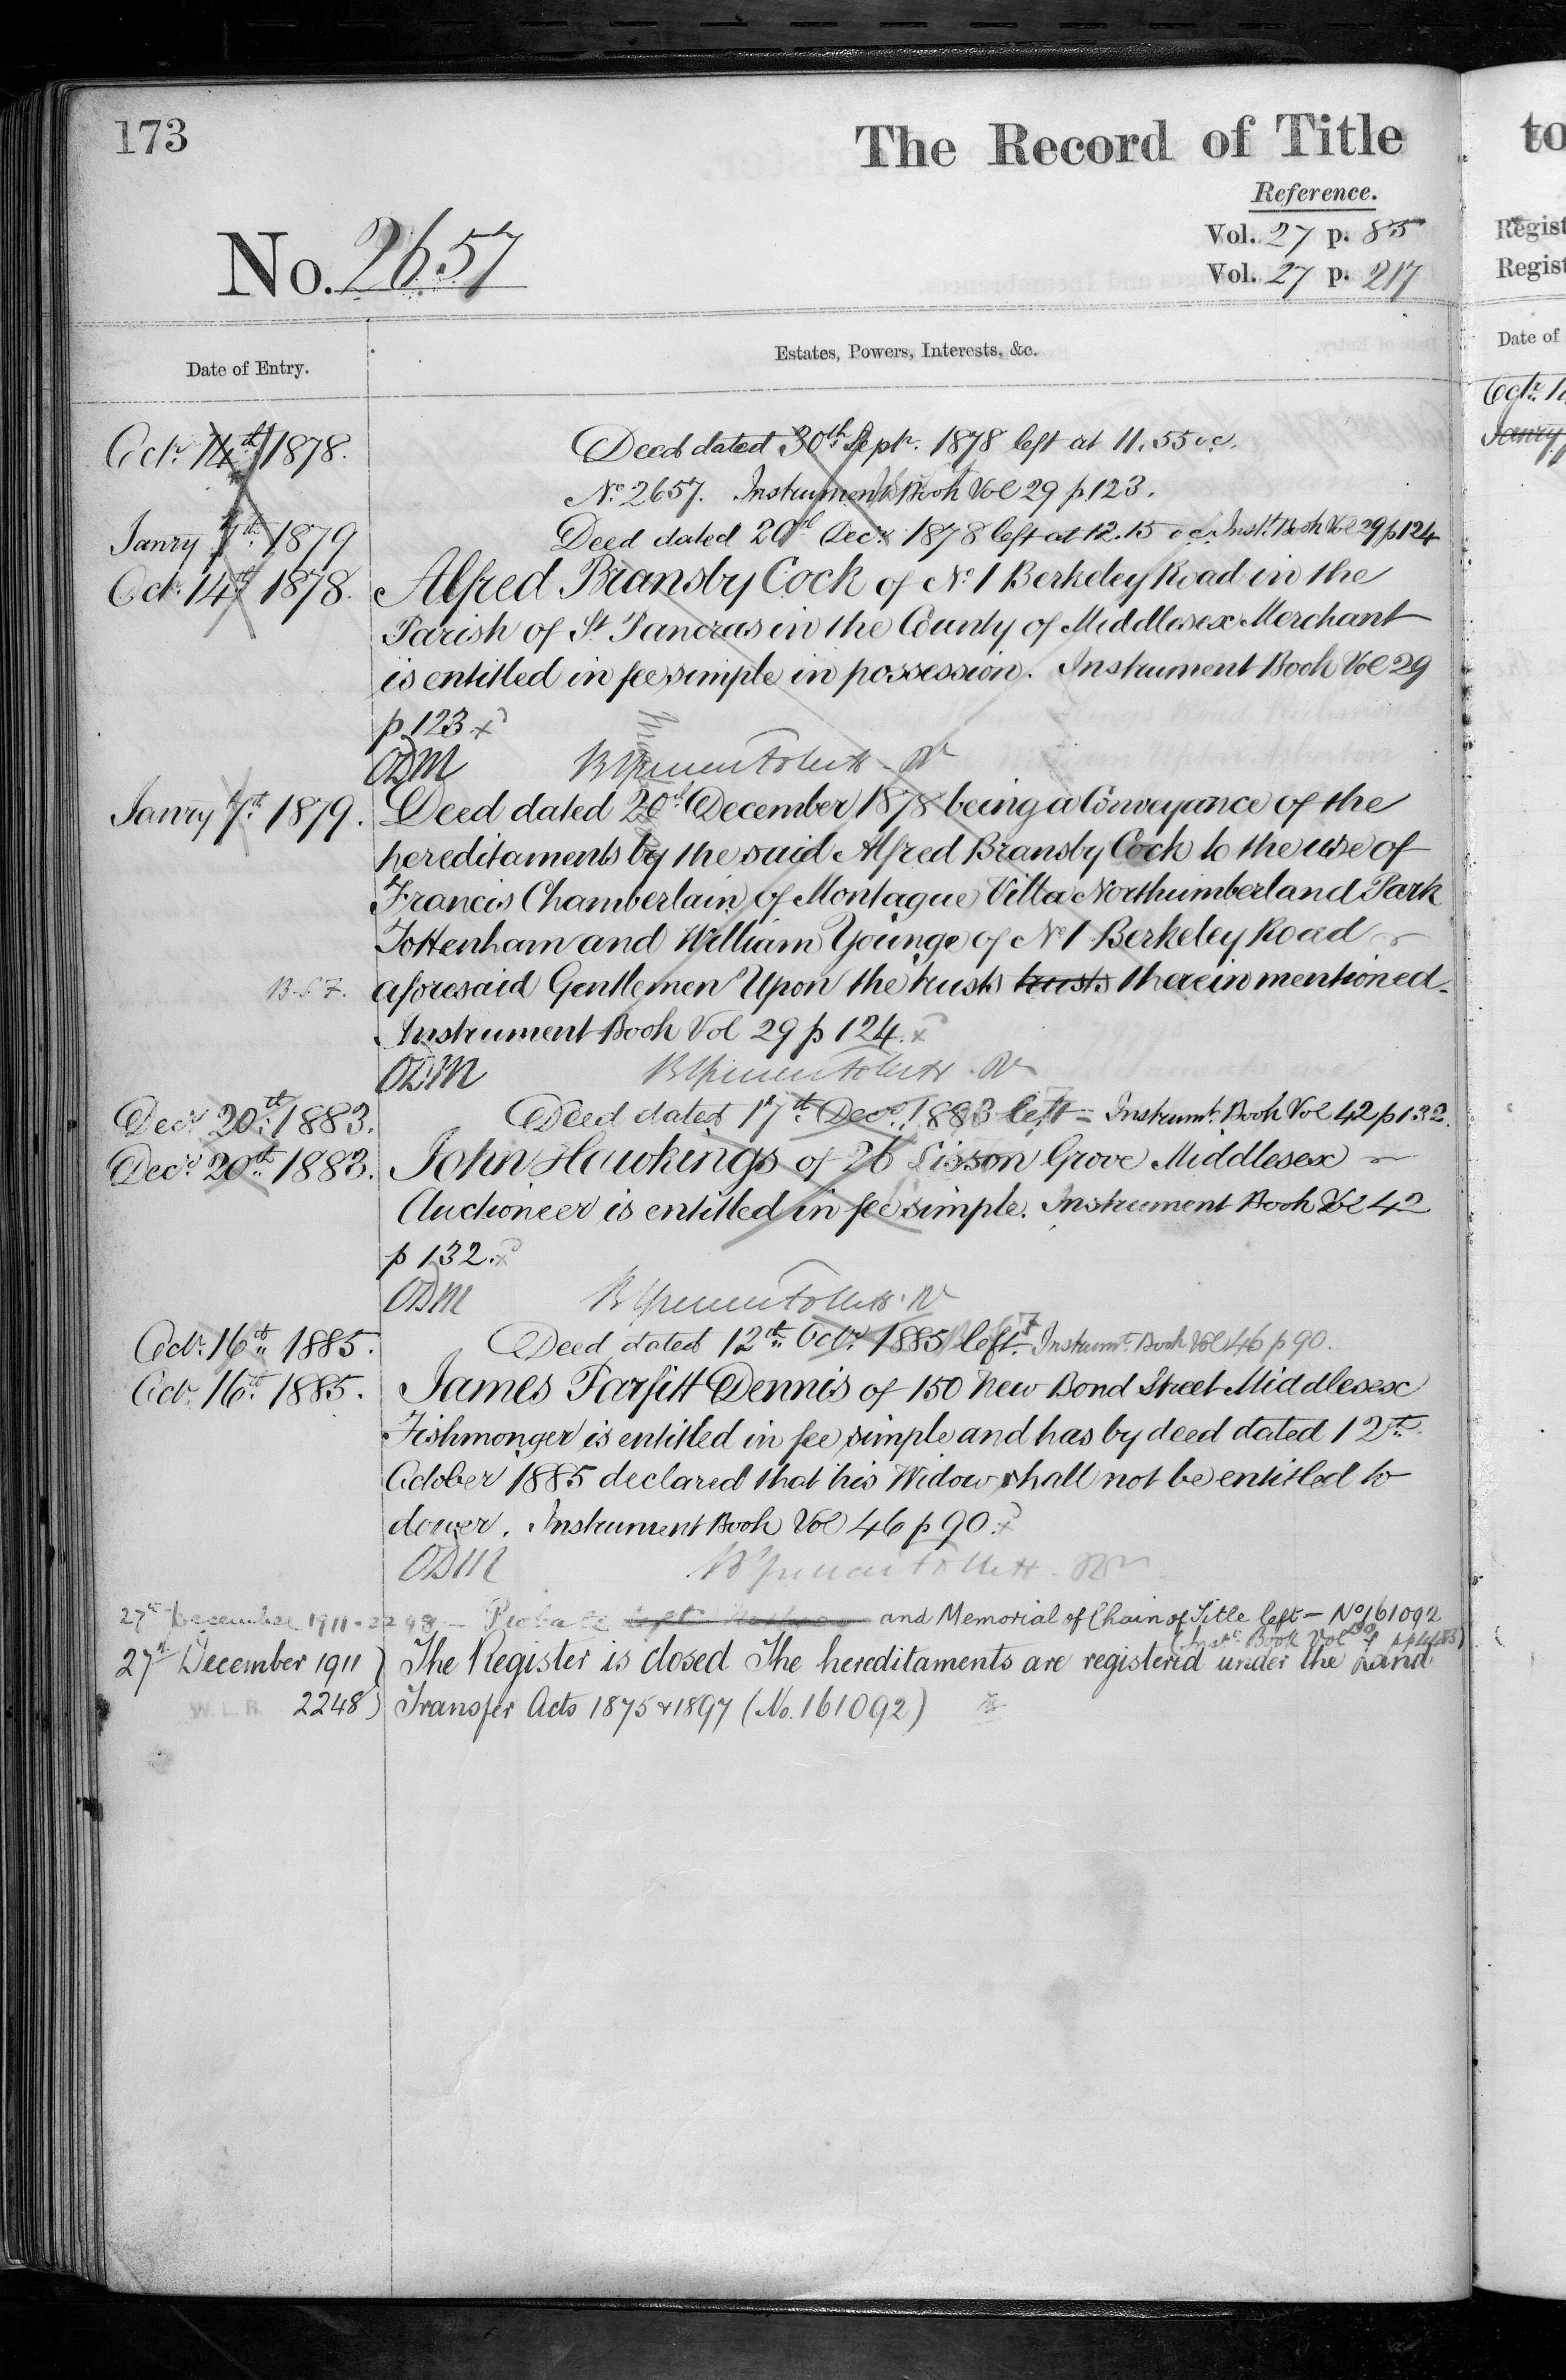 173
The Record of Title
Reference.
Vol. 27 p. 85
Vol. 27 p. 217
No. 2657
Date of Entry.
Estates, Powers, Interests, &c.
Octr. 14th 1878. Deed dated 30th Septr. 1878 left at 11.55 oc.
No. 2657. Instrument Book Vol 29 p 123.
Janry 7th 1879 Deed dated 20th Decr. 1878 left at 12.15 oc. Inst. Book Vol 29 p 124
Octr. 14th 1878. Alfred Bransby Cock of No. 1 Berkeley Road in the
Parish of St Pancras in the County of Middlesex Merchant
is entitled in fee simple in possession. Instrument Book Vol 29
p 123. x
ODM
Janry 7th 1879. Deed dated 20th December 1878 being a Conveyance of the
hereditaments by the said Alfred Bransby Cock to the use of
Francis Chamberlain of Montague Villa Northumberland Park
Tottenham and William Younge of No. 1 Berkeley Road
B.S.F. aforesaid Gentlemen Upon the trusts trusts therein mentioned.
Instrument Book Vol 29 p 124. x
ODM
Decr. 20th 1883. Deed dated 17th Decr. 1883 left = Instrumt. Book Vol 42 p 132.
Decr. 20th 1883. John Hawkings of 26 Lisson Grove Middlesex
Auctioneer is entitled in fee simple. Instrument Book Vol 42
p 132. x
ODM
Octr. 16th 1885. Deed dated 12th Octr. 1885 left. Instrumt. Book Vol 46 p 90.
Octr. 16th 1885. James Parfitt Dennis of 150 New Bond Street Middlesex
Fishmonger is entitled in fee simple and has by deed dated 12th
October 1885 declared that his Widow shall not be entitled to
dower. Instrument Book Vol 46 p 90. x
ODM
27th December 1911 - 2248 - Probate left and Memorial of Chain of Title left - No 161092
(Instt. Book Vol
27th December 1911 ) The Register is closed The hereditaments are registered under the Land
W.L.R. 2248 ) Transfer Acts 1875 & 1897 (No. 161092)
to
Regist
Regist
Date of
Octr. 1
Janry